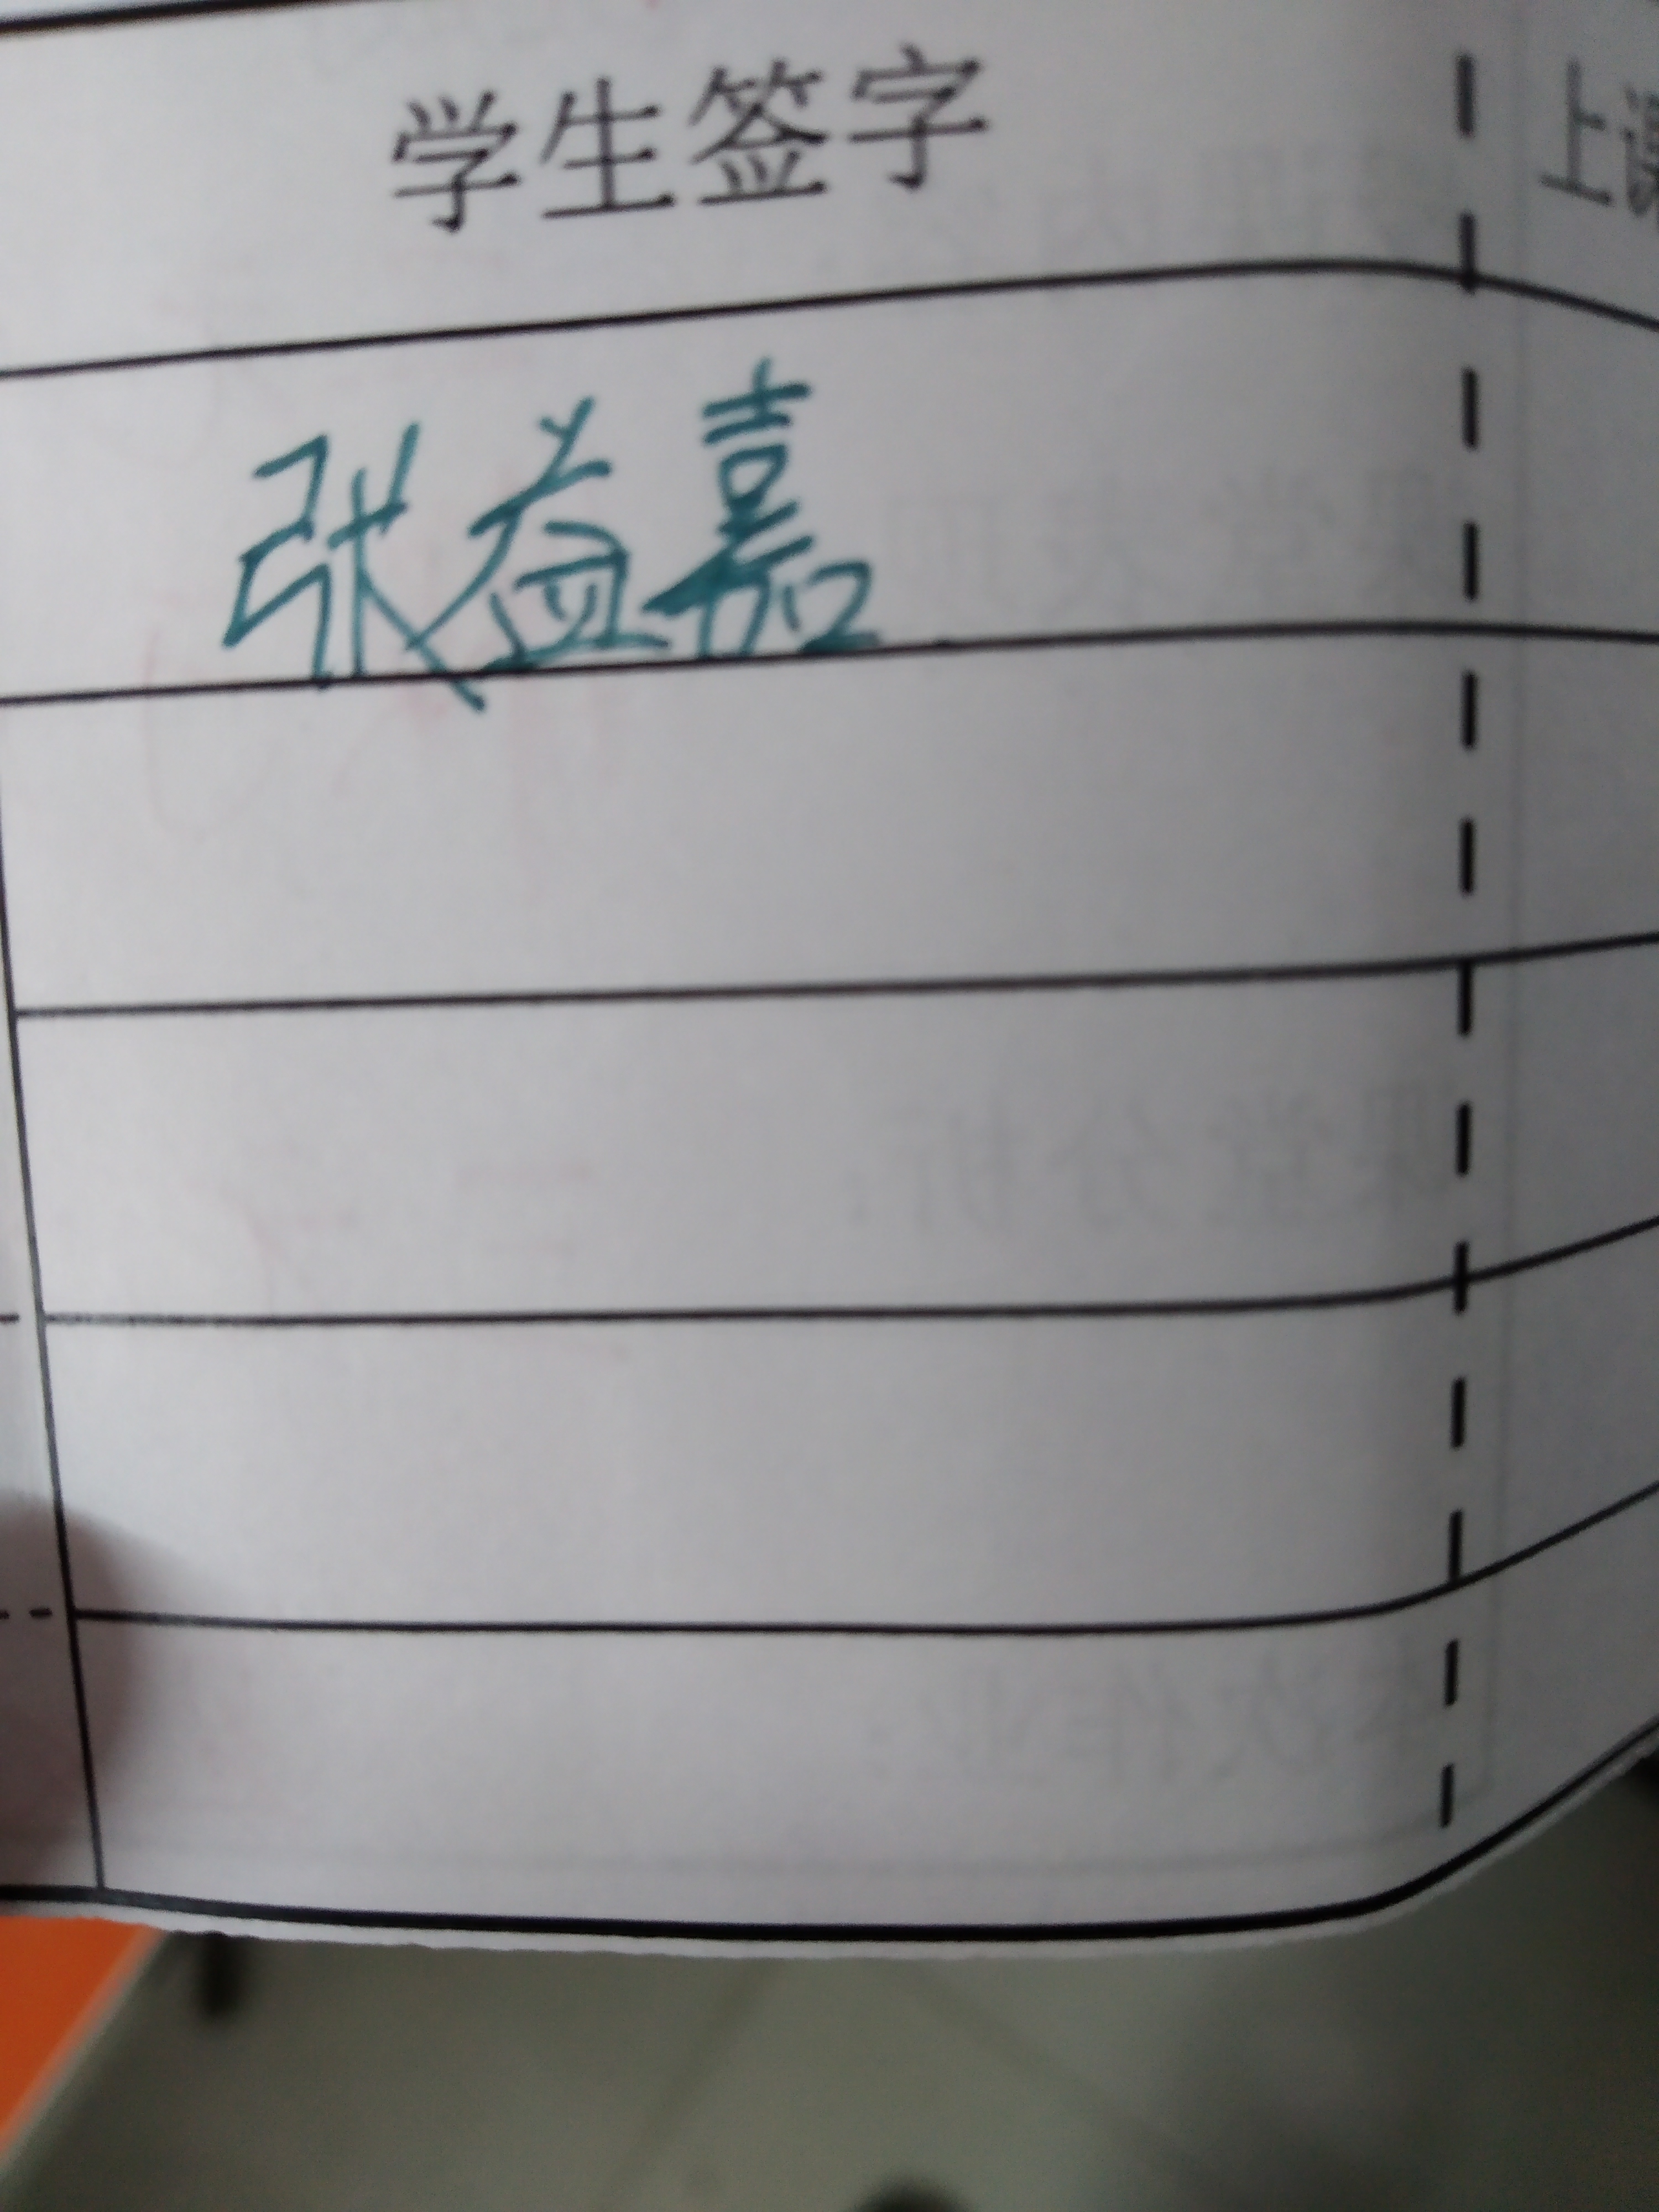 学生签字
上课
张益嘉